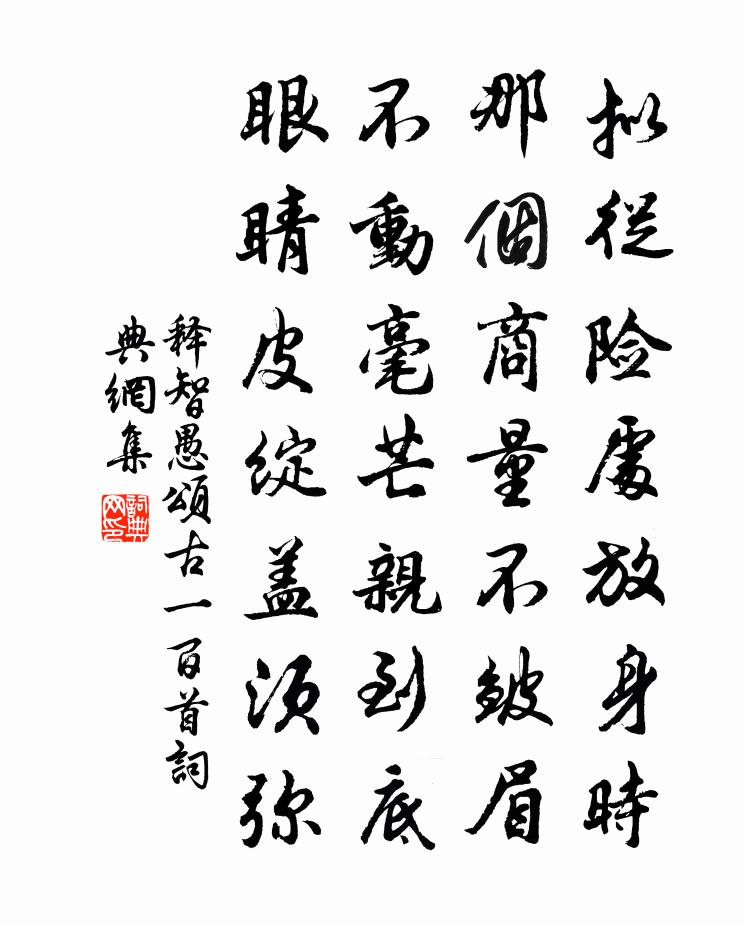 拟從险處放身時
那個商量不皴眉
不動毫芒親到底
眼晴皮绽盖须弥
释智愚頌古一百首詞
典網集
詞典
网印